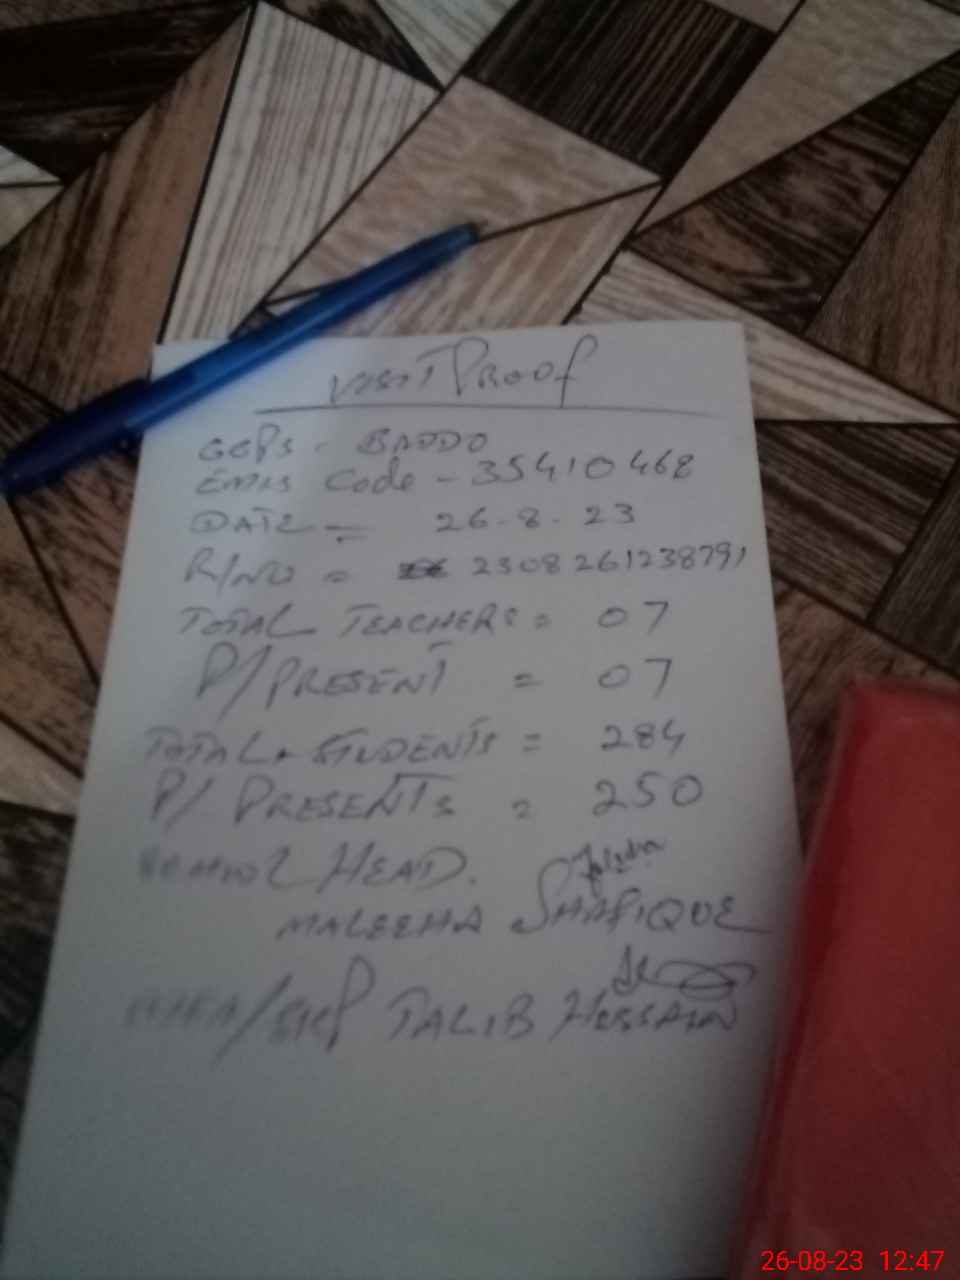 VISIT PROOF
GGPS - BADDO
EMIS Code - 35410468
DATE = 26-8-23
R/NO = 2308261238791
TOTAL TEACHERS = 07
P/PRESENT = 07
TOTAL STUDENTS = 284
P/ PRESENTS = 250
SCHOOL HEAD.
MALEEHA SHAFIQUE
TALIB HUSSAIN
26-08-23 12:47